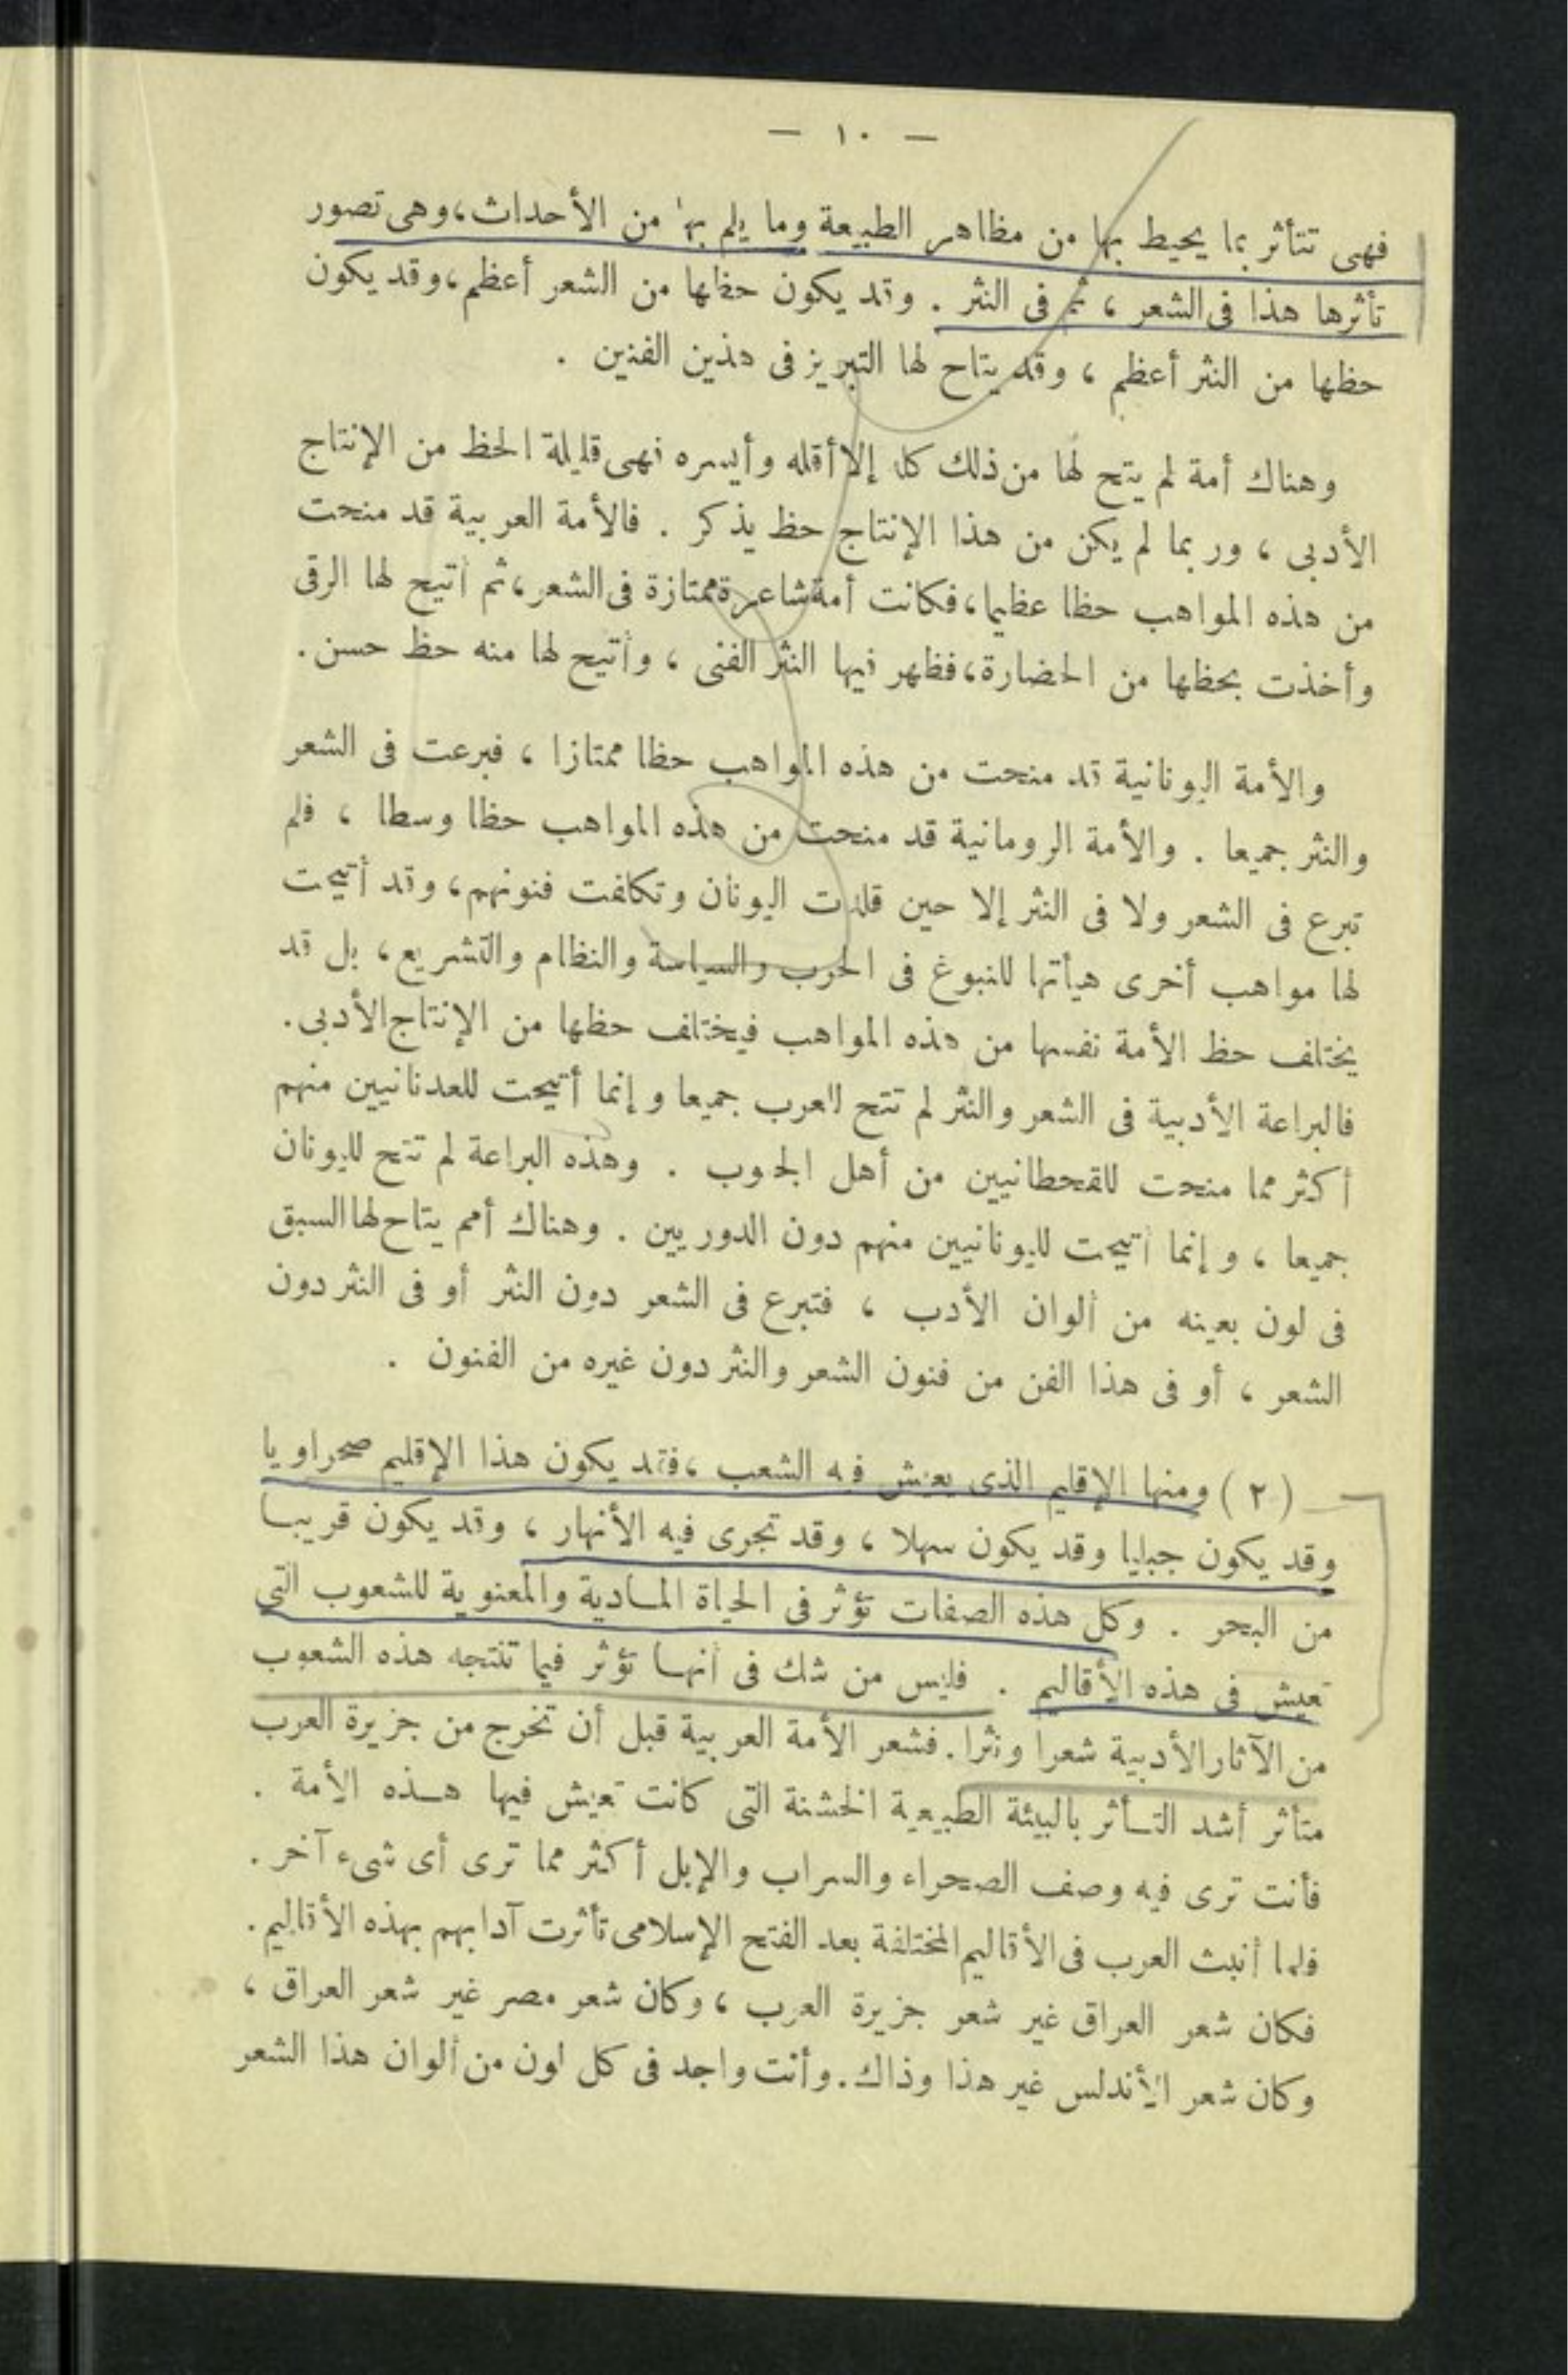 — ١٠ —
فهى تتأثر بما يحيط بها من مظاهر الطبيعة وما يلم بها من الأحداث، وهى تصور
تأثرها هذا فى الشعر ، ثم فى النثر . وقد يكون حظها من الشعر أعظم، وقد يكون
حظها من النثر أعظم ، وقد يتاح لها التبريز فى هذين الفنين .
وهناك أمة لم يتح لها من ذلك كله إلا أقله وأيسره فهى قليلة الحظ من الإنتاج
الأدبى ، وربما لم يكن من هذا الإنتاج حظ يذكر . فالأمة العربية قد منحت
من هذه المواهب حظا عظيما، فكانت أمة شاعرة ممتازة فى الشعر، ثم أتيح لها الرقى
وأخذت بحظها من الحضارة، فظهر فيها النثر الفنى ، وأتيح لها منه حظ حسن.
والأمة اليونانية قد منحت من هذه المواهب حظا ممتازا ، فبرعت فى الشعر
والنثر جميعا . والأمة الرومانية قد منحت من هذه المواهب حظا وسطا ، فلم
تبرع فى الشعر ولا فى النثر إلا حين قلدت اليونان وتكلفت فنونهم، وقد أتيحت
لها مواهب أخرى هيأتها للنبوغ فى الحرب والسياسة والنظام والتشريع، بل قد
يختلف حظ الأمة نفسها من هذه المواهب فيختلف حظها من الإنتاج الأدبى.
فالبراعة الأدبية فى الشعر والنثر لم تتح للعرب جميعا وإنما أتيحت للعدنانيين منهم
أكثر مما منحت للقحطانيين من أهل الجنوب . وهذه البراعة لم تتح لليونان
جميعا ، وإنما أتيحت لليونانيين منهم دون الدوريين . وهناك أمم يتاح لها السبق
فى لون بعينه من ألوان الأدب ، فتبرع فى الشعر دون النثر أو فى النثر دون
الشعر ، أو فى هذا الفن من فنون الشعر والنثر دون غيره من الفنون .
(٢) ومنها الإقليم الذى يعيش فيه الشعب ، فقد يكون هذا الإقليم صحراويا
وقد يكون جبليا وقد يكون سهلا ، وقد تجرى فيه الأنهار ، وقد يكون قريبا
من البحر . وكل هذه الصفات تؤثر فى الحياة المادية والمعنوية للشعوب التى
تعيش فى هذه الأقاليم . فليس من شك فى أنها تؤثر فيما تنتجه هذه الشعوب
من الآثار الأدبية شعرا ونثرا. فشعر الأمة العربية قبل أن تخرج من جزيرة العرب
متأثر أشد التأثر بالبيئة الطبيعية الخشنة التى كانت تعيش فيها هذه الأمة .
فأنت ترى فيه وصف الصحراء والسراب والإبل أكثر مما ترى أى شىء آخر.
فلما أنبث العرب فى الأقاليم المختلفة بعد الفتح الإسلامى تأثرت آدابهم بهذه الأقاليم.
فكان شعر العراق غير شعر جزيرة العرب ، وكان شعر مصر غير شعر العراق ،
وكان شعر الأندلس غير هذا وذاك. وأنت واجد فى كل لون من ألوان هذا الشعر